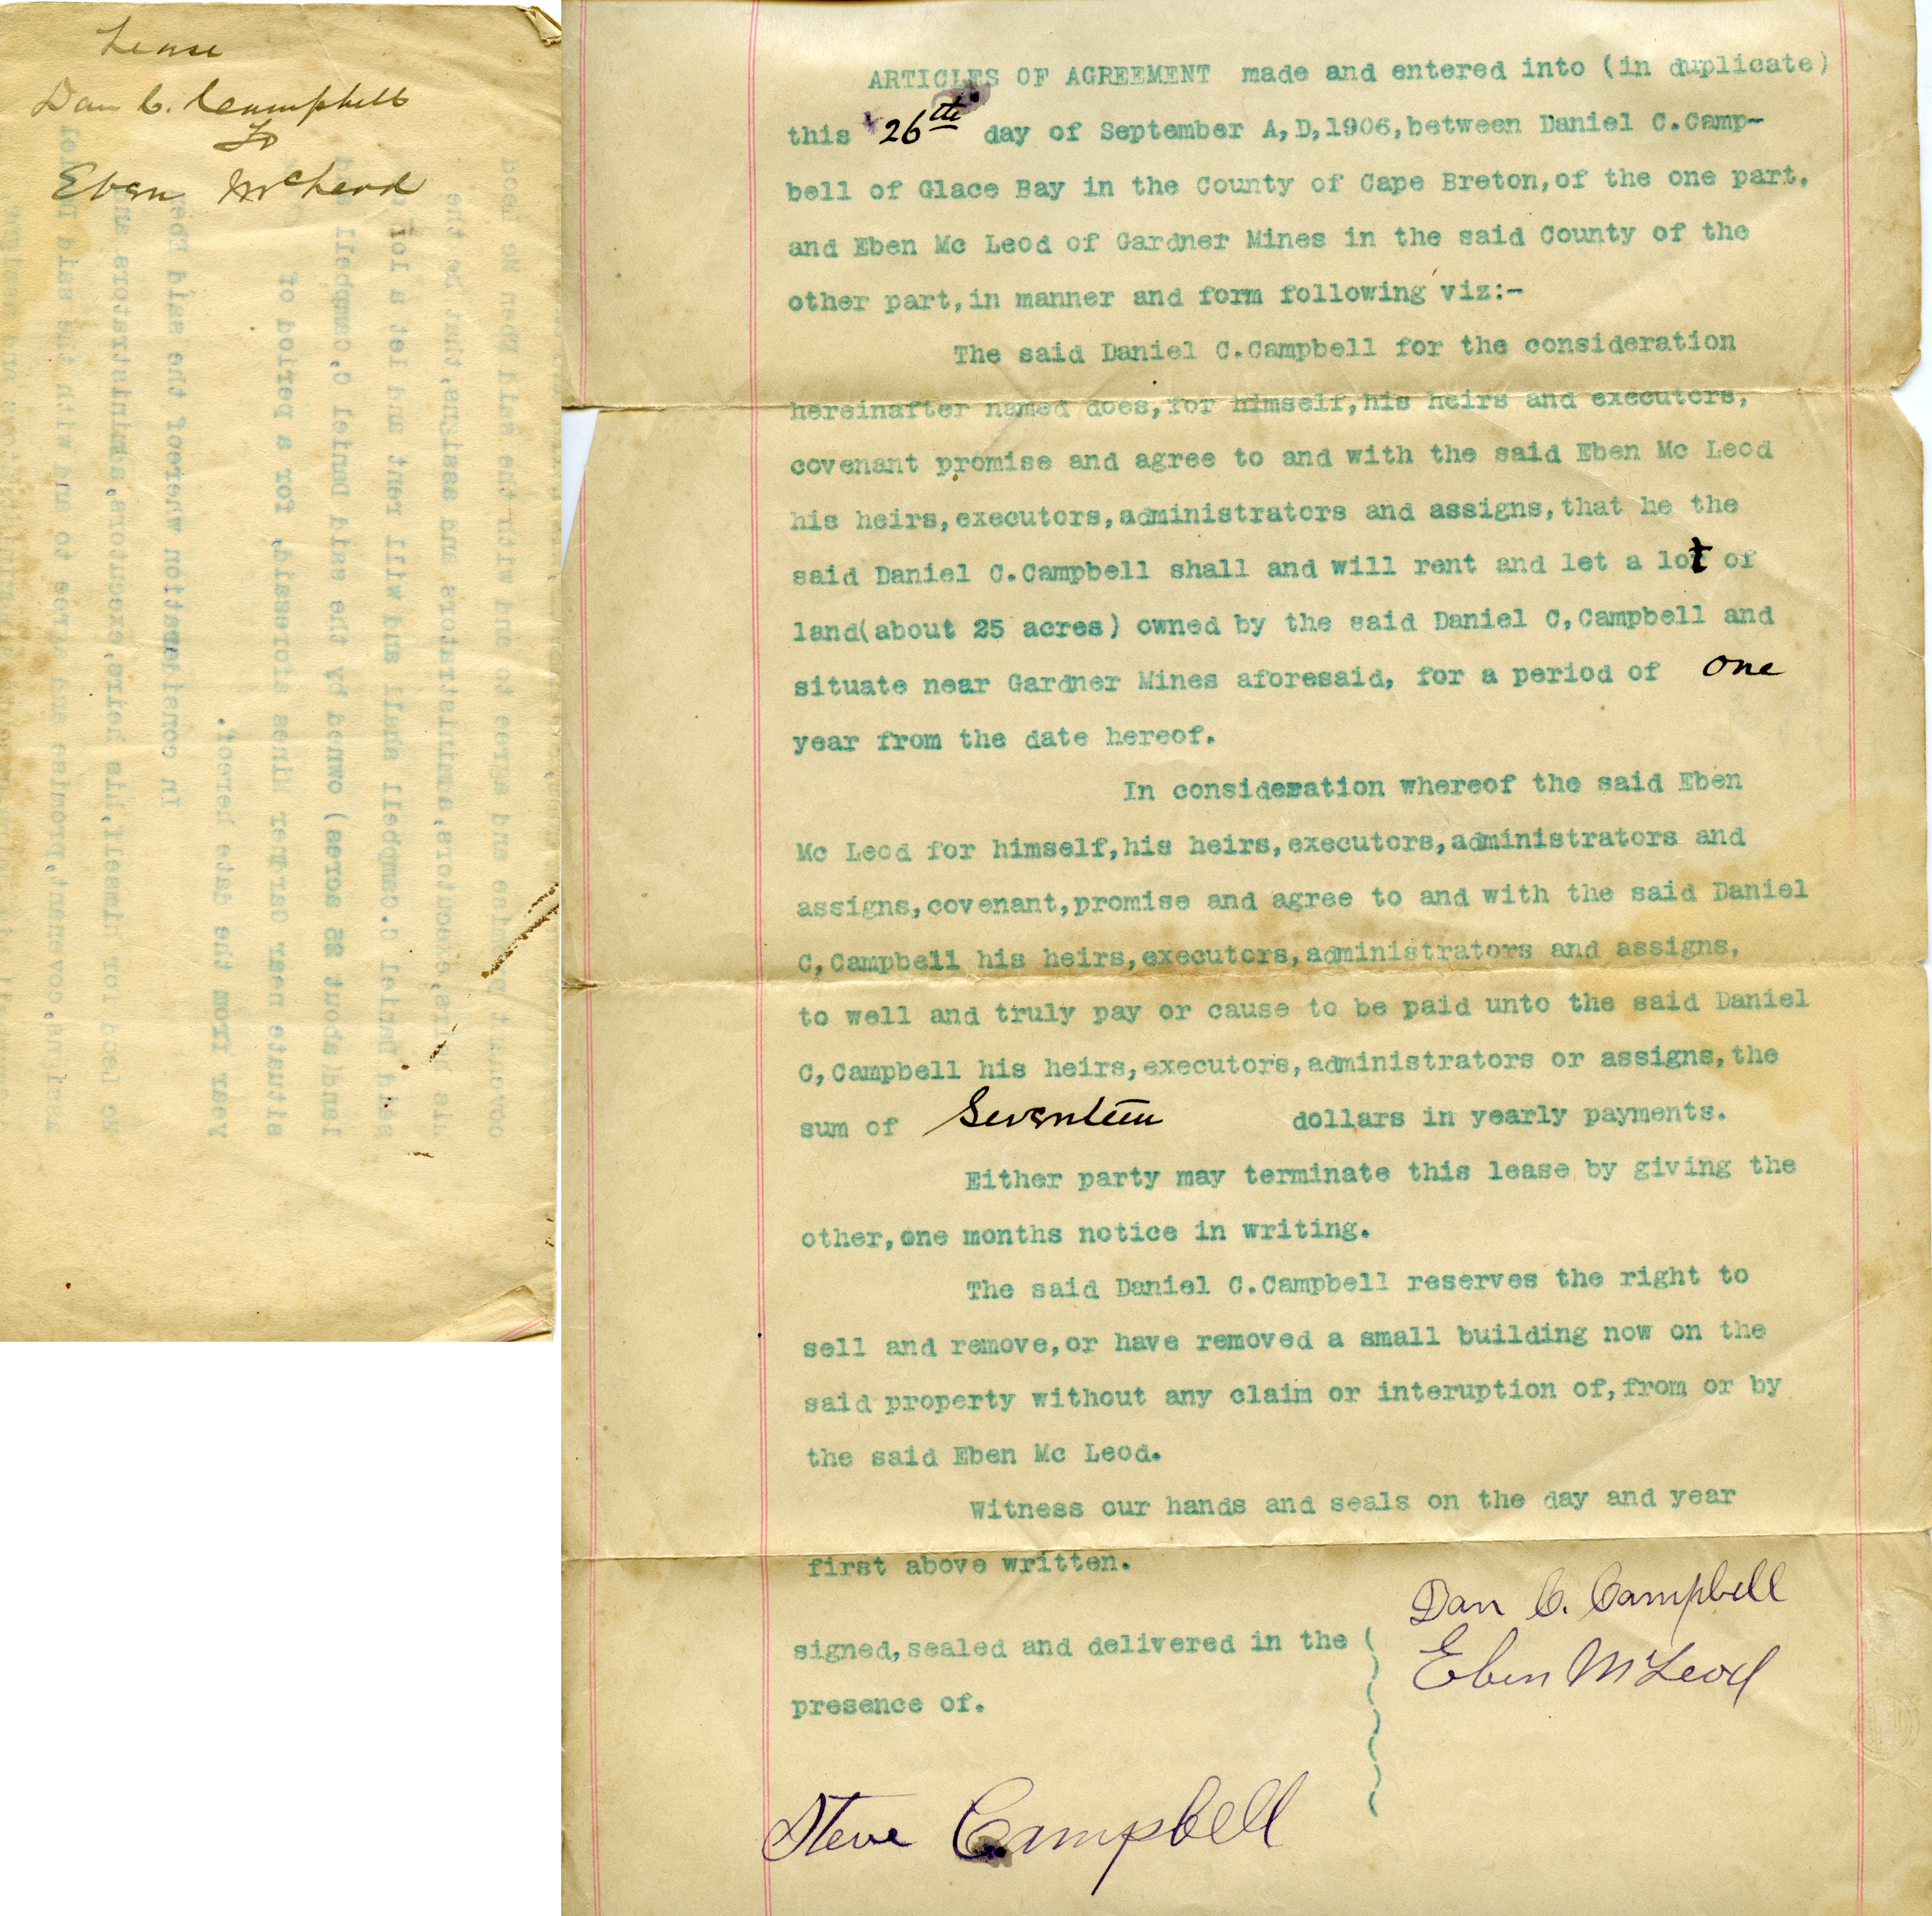 Lease
Dan C. Campbell
To
Eben McLeod
ARTICLES OF AGREEMENT made and entered into (in duplicate)
this 26th day of September A,D,1906,between Daniel C.Camp-
bell of Glace Bay in the County of Cape Breton,of the one part,
and Eben Mc Leod of Gardner Mines in the said County of the
other part,in manner and form following viz:-
The said Daniel C.Campbell for the consideration
hereinafter named does,for himself,his heirs and executors,
covenant promise and agree to and with the said Eben Mc Leod
his heirs,executors,administrators and assigns,that he the
said Daniel C.Campbell shall and will rent and let a lot of
land(about 25 acres) owned by the said Daniel C,Campbell and
situate near Gardner Mines aforesaid, for a period of one
year from the date hereof.
In consideration whereof the said Eben
Mc Leod for himself,his heirs,executors,administrators and
assigns,covenant,promise and agree to and with the said Daniel
C,Campbell his heirs,executors,administrators and assigns,
to well and truly pay or cause to be paid unto the said Daniel
C,Campbell his heirs,executors,administrators or assigns,the
sum of Seventeen dollars in yearly payments.
Either party may terminate this lease by giving the
other,one months notice in writing.
The said Daniel C.Campbell reserves the right to
sell and remove,or have removed a small building now on the
said property without any claim or interuption of,from or by
the said Eben Mc Leod.
Witness our hands and seals on the day and year
first above written.
Dan C. Campbell
Eben McLeod
signed,sealed and delivered in the (
presence of.
Steve Campbell